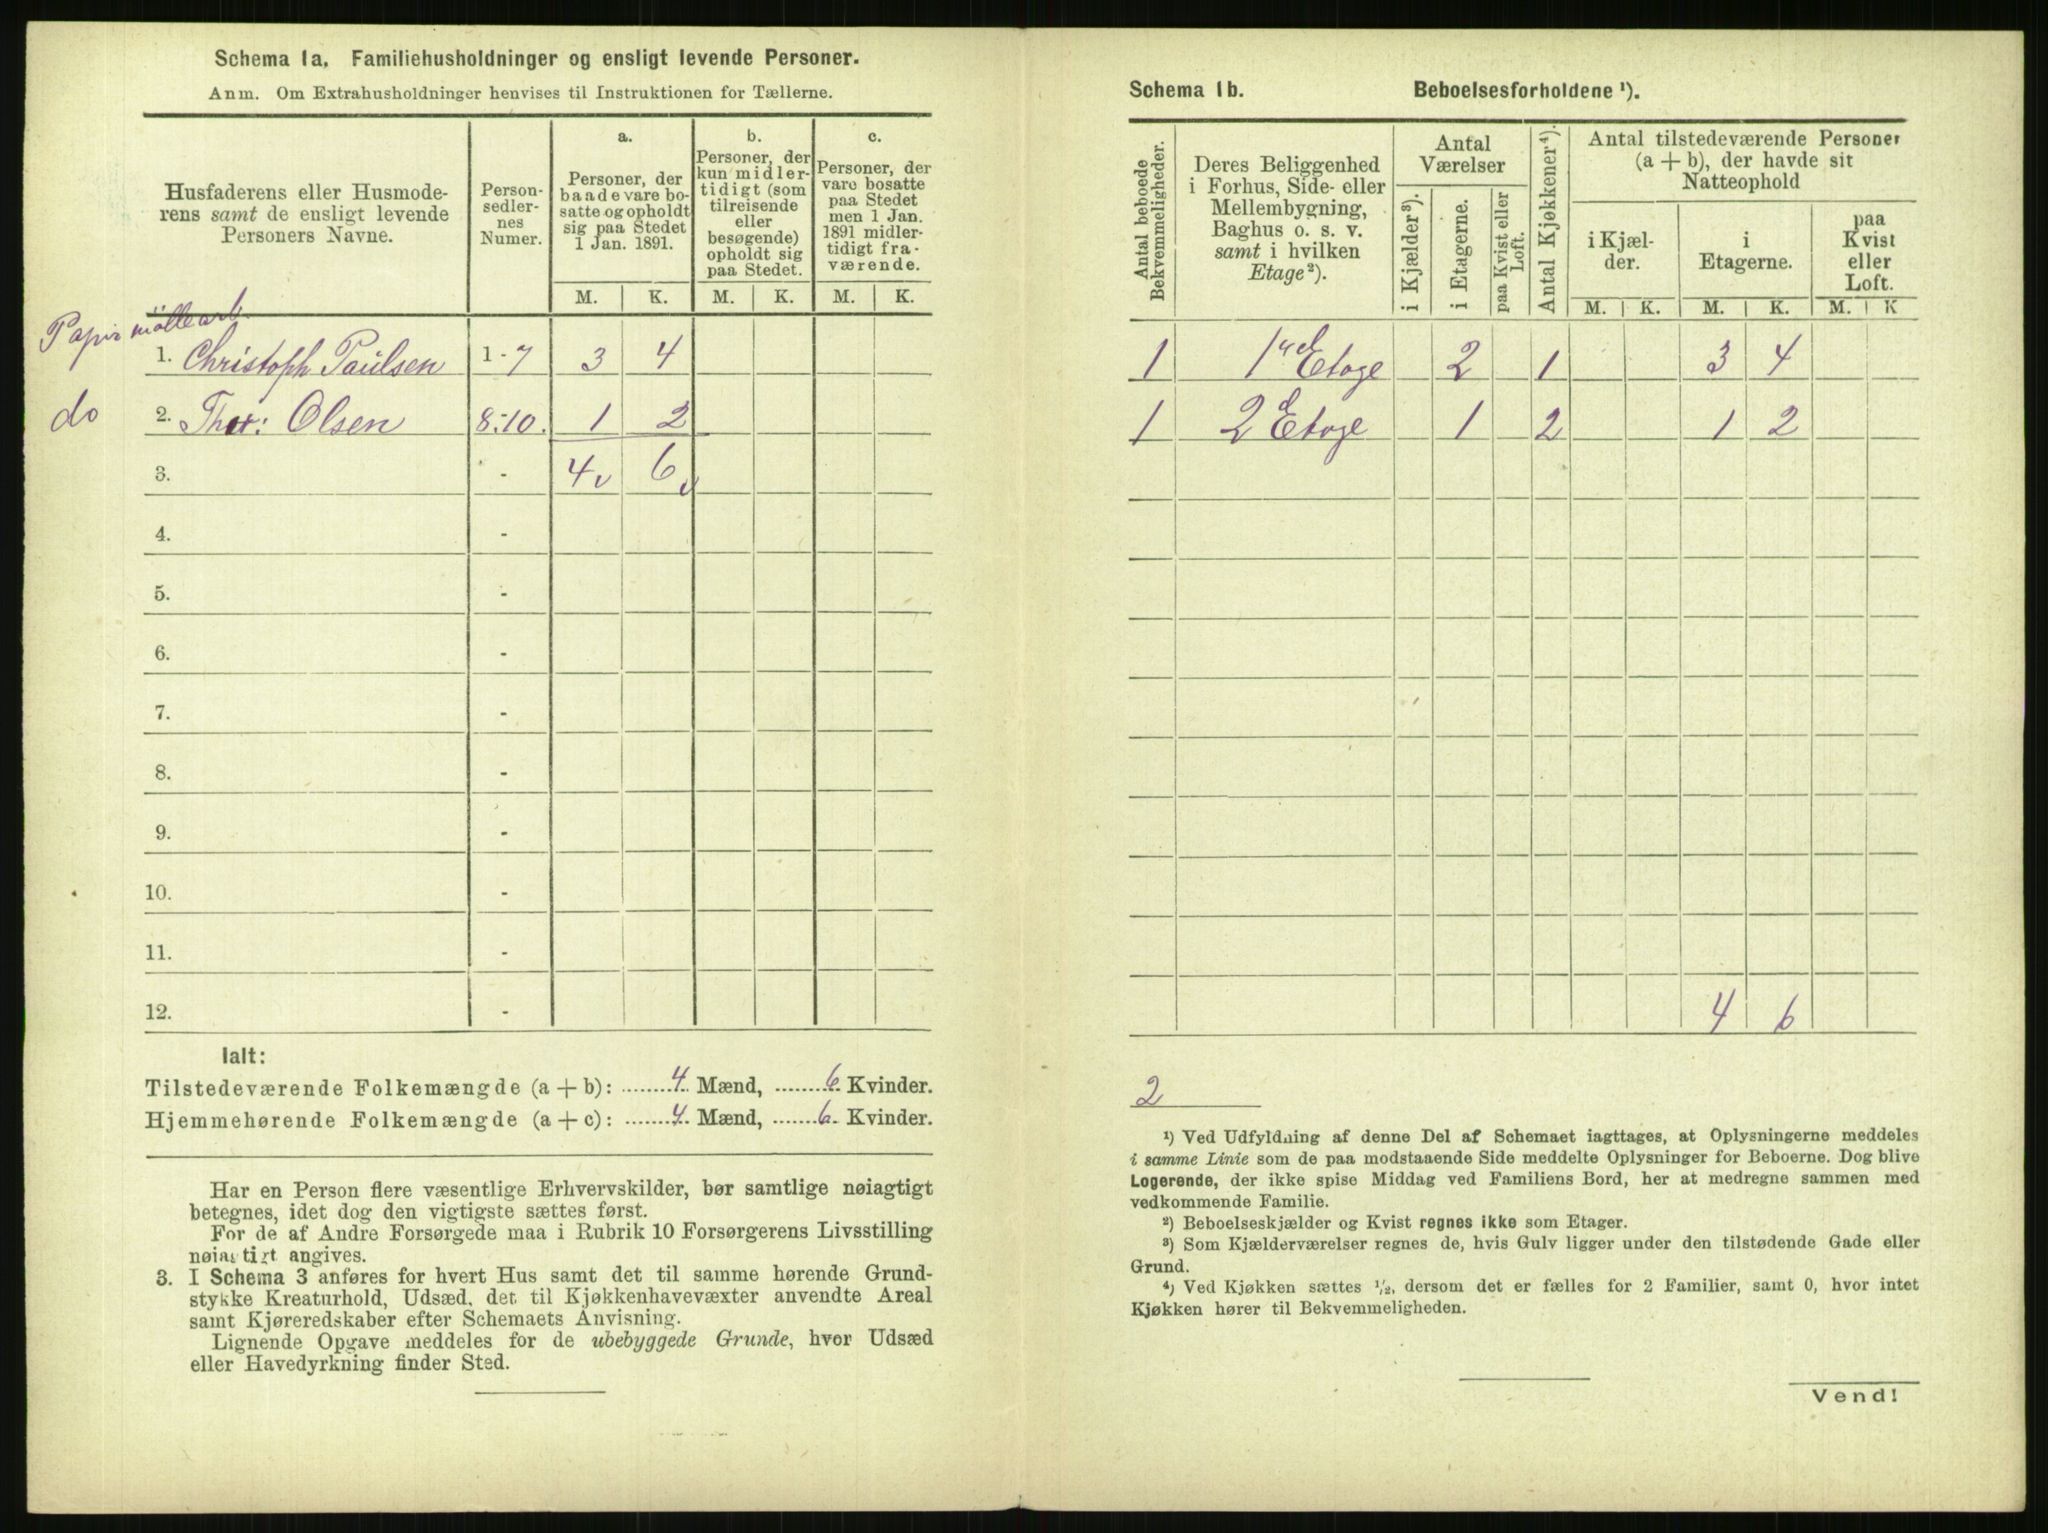 Schema 1a. Familiehusholdninger og ensligt levende Personer.
Anm. Om Extrahusholdninger henvises til Instruktionen for Tællerne.
Husfaderens eller Husmode-
rens samt de ensligt levende
Personers Navne.
Person-
sedler-
nes
Numer.
a.
Personer, der
baade vare bo-
satte og opholdt
sig paa Stedet
1 Jan. 1891.
b.
Personer, der
kun midler-
tidigt (som
tilreisende
eller
besøgende)
opholdt sig
paa Stedet.
c.
Personer, der
vare bosatte
paa Stedet
men 1 Jan.
1891 midler-
tidigt fra-
værende.
M. K. M. K. M. K.
Papirmöllearb.
1. Christoph Paulsen 1-7 3 4
do 2. Thor: Olsen 8-10. 1 2
3. - 4 6
4. -
5. -
6. -
7. -
8. -
9. -
10. -
11. -
12. -
Ialt:
Tilstedeværende Folkemængde (a + b): 4 Mænd, 6 Kvinder.
Hjemmehørende Folkemængde (a + c): 4 Mænd, 6 Kvinder.
Har en Person flere væsentlige Erhvervskilder, bør samtlige nøiagtigt
betegnes, idet dog den vigtigste sættes først.
For de af Andre Forsørgede maa i Rubrik 10 Forsørgerens Livsstilling
nøiagtigt angives.
3. I Schema 3 anføres for hvert Hus samt det til samme hørende Grund-
stykke Kreaturhold, Udsæd, det til Kjøkkenhavevæxter anvendte Areal
samt Kjøreredskaber efter Schemaets Anvisning.
Lignende Opgave meddeles for de ubebyggede Grunde, hvor Udsæd
eller Havedyrkning finder Sted.
Schema 1b. Beboelsesforholdene ¹).
Antal beboede
Bekvemmeligheder.
Deres Beliggenhed
i Forhus, Side- eller
Mellembygning,
Baghus o. s. v.
samt i hvilken
Etage²).
Antal
Værelser
i Kjælder³).
i Etagerne.
paa Kvist eller
Loft.
Antal Kjøkkener⁴).
Antal tilstedeværende Personer
(a + b), der havde sit
Natteophold
i Kjæl-
der.
i
Etagerne.
paa
Kvist
eller
Loft.
M. K. M. K. M. K
1 1ste Etage 2 1 3 4
1 2d Etage 1 2 1 2
4 6
2
¹) Ved Udfyldning af denne Del af Schemaet iagttages, at Oplysningerne meddeles
i samme Linie som de paa modstaaende Side meddelte Oplysninger for Beboerne. Dog blive
Logerende, der ikke spise Middag ved Familiens Bord, her at medregne sammen med
vedkommende Familie.
²) Beboelseskjælder og Kvist regnes ikke som Etager.
³) Som Kjælderværelser regnes de, hvis Gulv ligger under den tilstødende Gade eller
Grund.
⁴) Ved Kjøkken sættes ½, dersom det er fælles for 2 Familier, samt 0, hvor intet
Kjøkken hører til Bekvemmeligheden.
Vend!